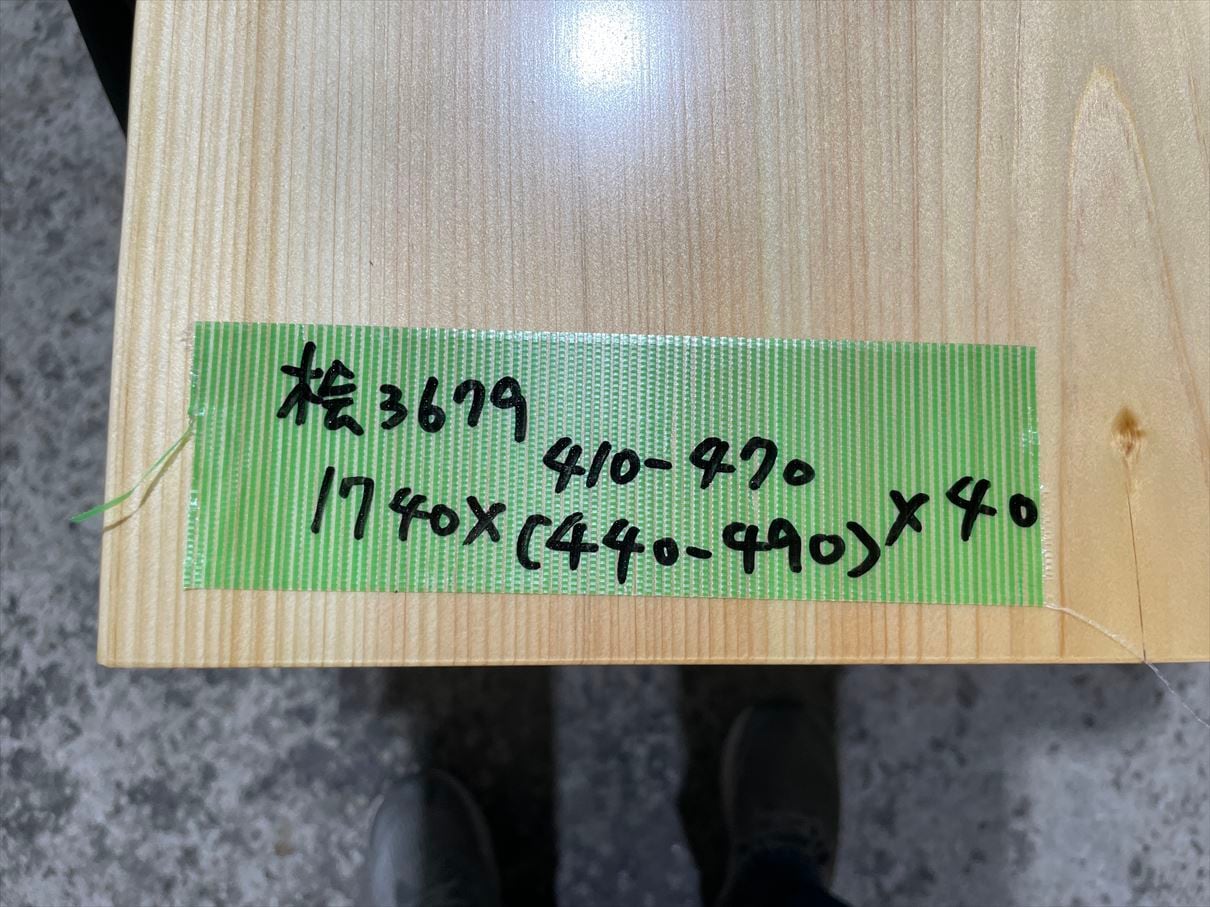 桧3679
410-470
1740×(440-490)×40